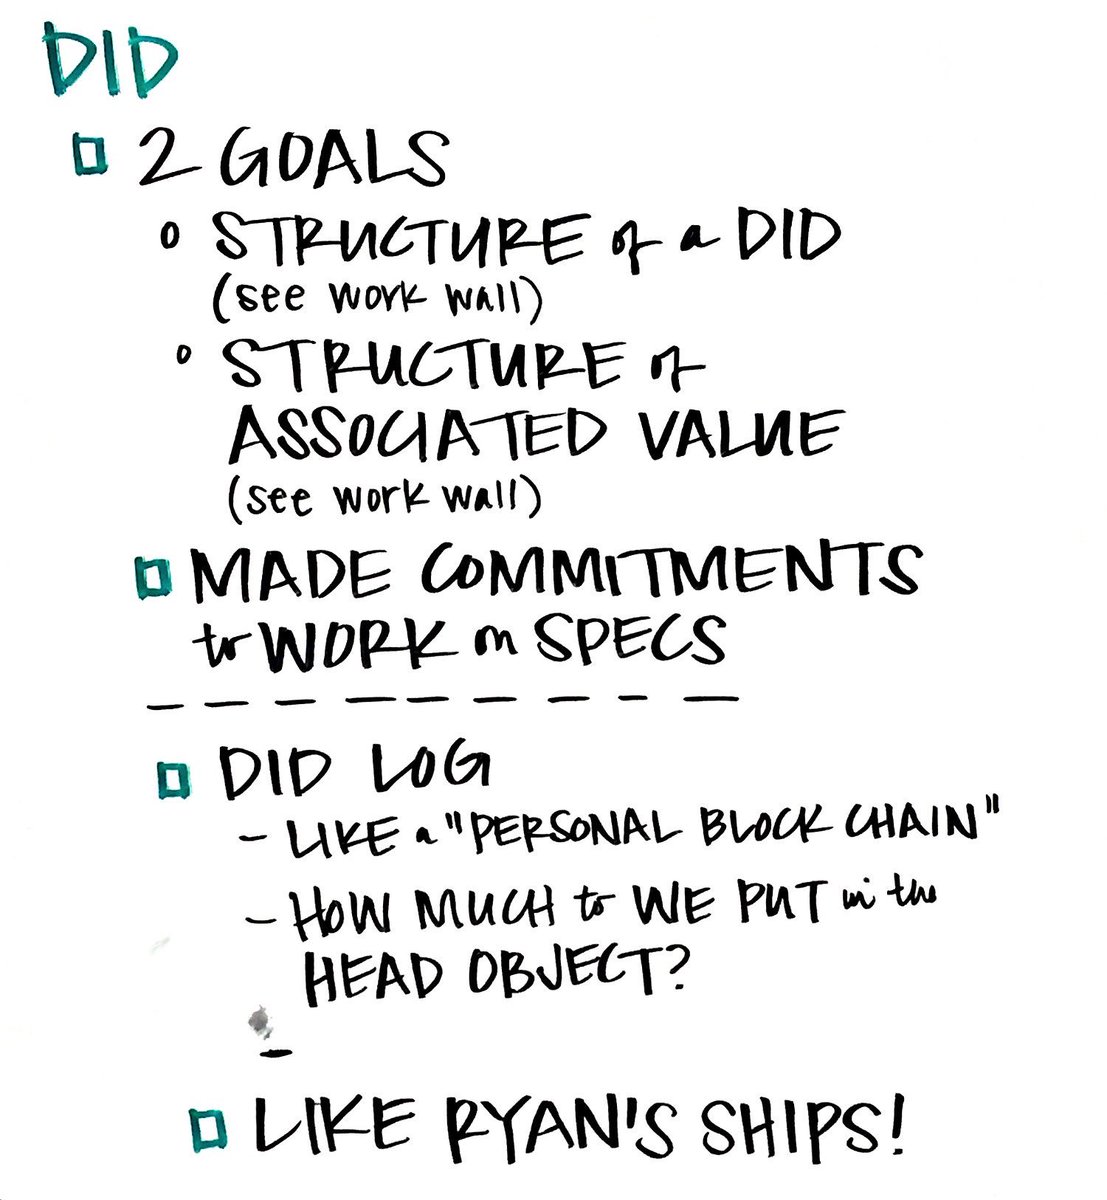 DID
2 GOALS
STRUCTURE of a DID
(see work wall)
STRUCTURE of
ASSOCIATED VALUE
(see work wall)
MADE COMMITMENTS
to WORK on SPECS
DID LOG
- LIKE a "PERSONAL BLOCK CHAIN"
- HOW MUCH to WE PUT in the
HEAD OBJECT?
-
LIKE RYAN'S SHIPS!